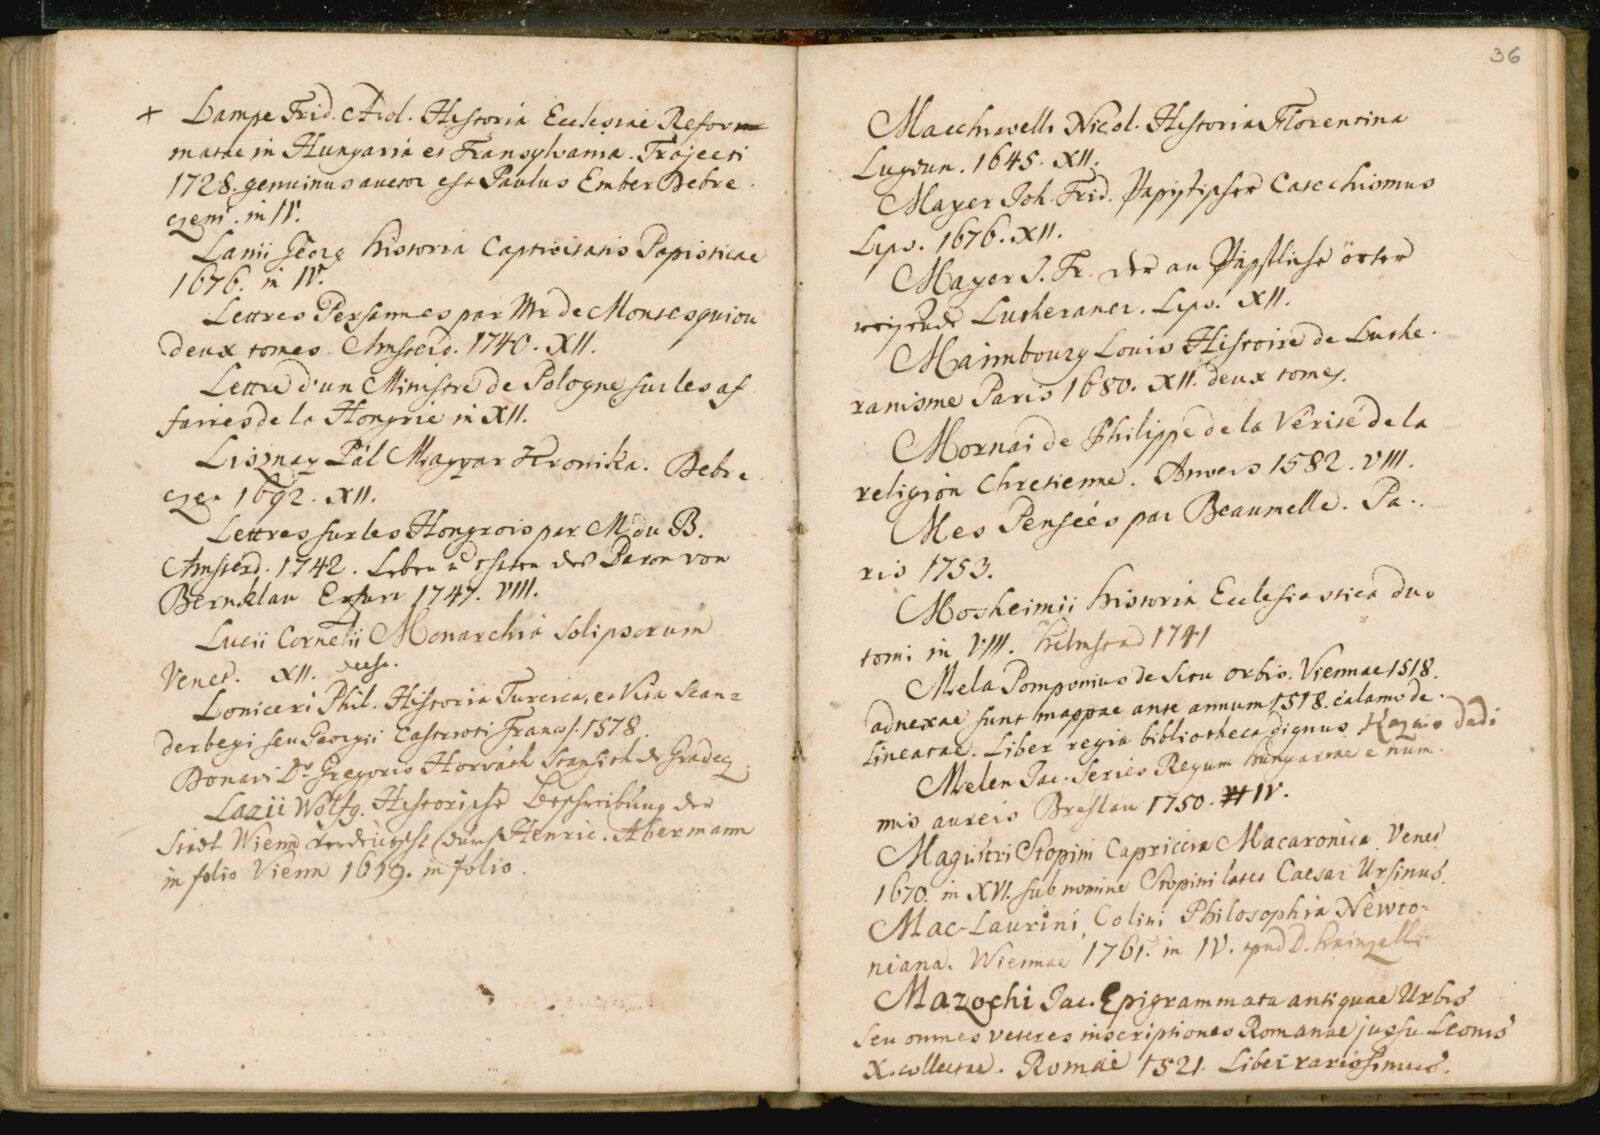 + Lampe Frid. Adol. Historia Ecclesiae Refor
matae in Hungaria et Transylvania. Trajecti
1728. genuinus auctor est Paulus Ember Debre
czeni. in IV.
Lanii Georg historia Captivitatis Papisticae
1676. in IV.
Lettres Persannes par Mr de Montesquiou
deux tomes. Amsterd. 1740. XII.
Lettre d'un Ministre de Pologne sur les af
faires de la Hongrie in XII.
Lisznay Pál Magyar Kronika. Debre
czen 1692. XII.
Lettres sur les Hongrois par M. du B.
Amsterd. 1742. Leben u. thaten des Baron von
Bernklau Erfurt 1747. VIII.
Lucii Cornelii Monarchia Solipsorum
Venet. XII. deest.
Loniceri Phil. Historia Turcica, et Vita Scan=
derbegi seu Georgii Castrioti Francof. 1578.
Donavi Dr Gregorio Horváth Stansith de Gradecz.
Lazii Wolfg. Historische Beschreibung der
Stadt Wienn verdeutscht durch Henric. Abermann
in folio Vienn 1619. in folio.
36
Macchiavelli Nicol. Historia Florentina
Lugdun. 1645. XII.
Mayer Joh. Frid. Papistischer Catechismus
Lips. 1676. XII.
Mayer J. Fr. der an Päpstliche örter
reisende Lutheraner. Lips. XII.
Maimbourg Louis Histoire de Luthe.
ranisme Paris 1680. XII. deux tomes.
Mornai de Philippe de la Vérité de la
religion Chretienne. Anvers 1582. VIII.
Mes Pensées par Beaumelle. Pa..
ris 1753.
Mosheimii historia Ecclesiastica duo
tomi in VIII. helmstad 1741
Mela Pomponius de Situ orbis. Viennae 1518.
adnexae sunt mappae ante annum 1518. calamo de.
lineatae. Liber regia bibliotheca dignus Razio dedi
Melen Jac. Series Regum hungariae e num.
mis aureis Breslau 1750. IV.
Magistri Stopini Capriccia Macaronica. Venet
1670. in XVI. sub nomine Stopini latet Caesar Ursinus.
Mac-Laurini, Colini Philosophia Newto=
niana. Viennae 1761. in IV. apud D.
Mazochi Jac. Epigrammata antiquae Urbis
seu omnes veteres inscriptiones Romanae jussu Leonis
X. collectae. Romae 1521. Liber rarissimus.